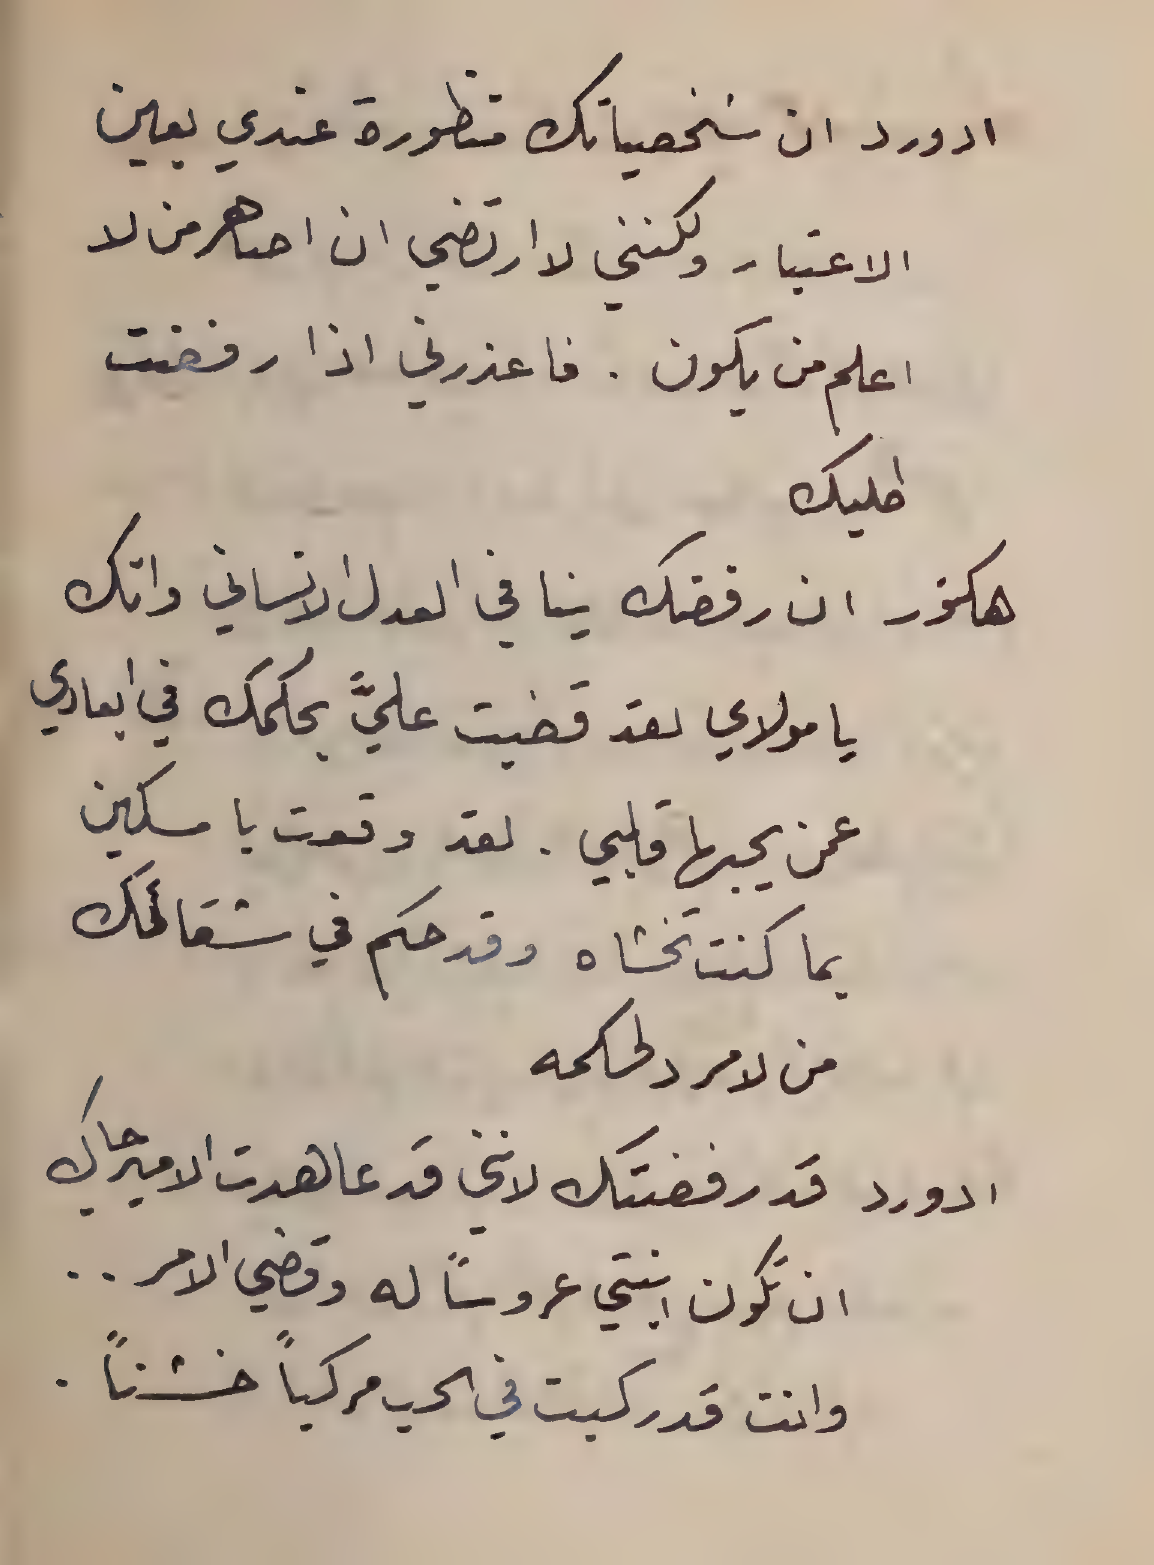 ادورد ان شخصياتك منظورة عندي بعين
الاعتبار ولكنني لا ارتضي ان اصاهر من لا
اعلم من يكون . فاعذرني اذا رفضت
طلبك
هكتور ان رفضك ينافي العدل الانساني وانك
يا مولاي لقد قضيت عليَّ بحكمك في ابعادي
عمن يحبها قلبي . لقد وقعت يا مسكين
بما كنت تخشاه وقد حكم في شقائك
من لا مرد لحكمه
ادورد قد رفضتك لانني قد عاهدت الامير جاك
ان تكون ابنتي عروساً له وقضي الامر ..
وانت قد ركبت في الحب مركباً خشناً .